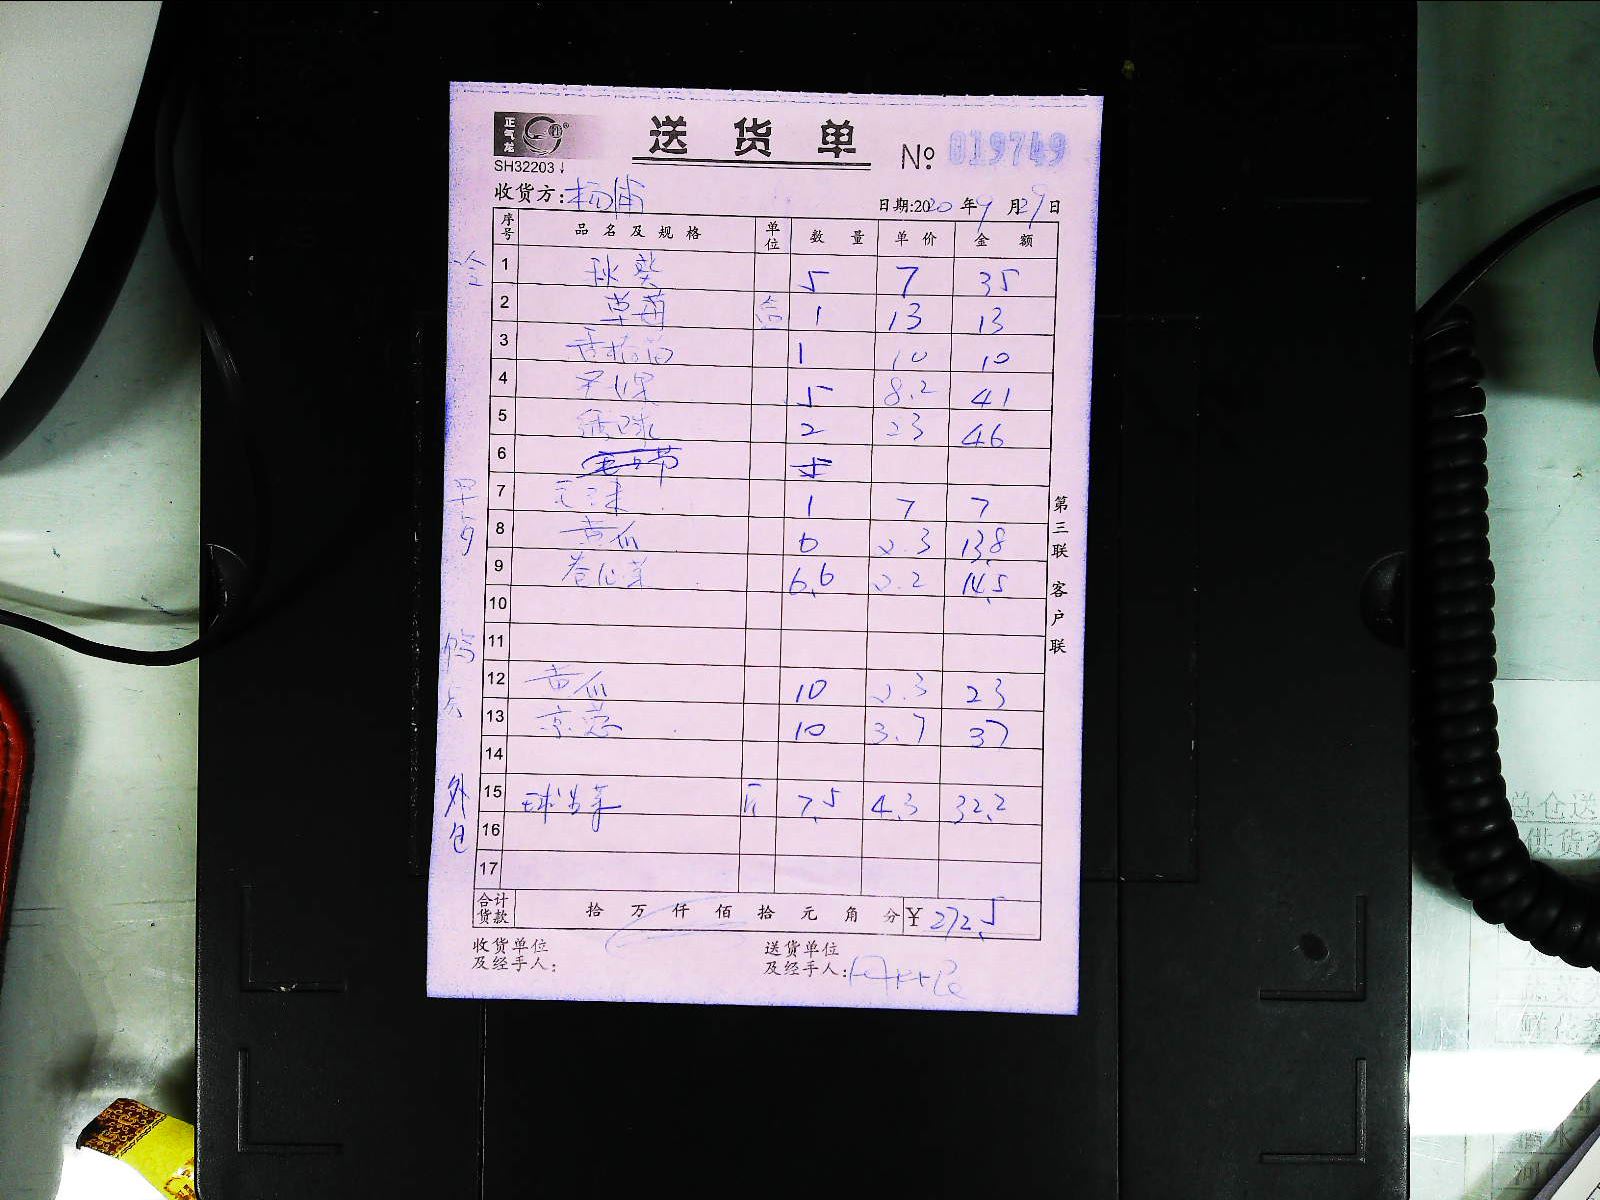 正气龙
送货单
№ 019749
SH32203
收货方:杨浦
日期:2020年9月29日
序号 品名及规格 单位 数量 单价 金额
冷
1 秋葵 5 7 35
2 草莓 盒 1 13 13
3 1 10 10
4 5 8.2 41
5 2 23 46
6
7 1 7 7
8 黄瓜 6 2.3 13.8
9 卷心菜 6.6 2.2 14.5
10
11
12 黄瓜 10 2.3 23
13 京葱 10 3.7 37
14
外仓
15 球生菜 斤 7.5 4.3 32.2
16
17
第三联 客户联
合计货款 拾 万 仟 佰 拾 元 角 分 ¥272.5
收货单位及经手人:
送货单位及经手人: